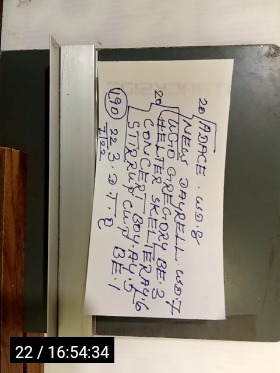 20 ADACE. WD.8
NEW DAYRELL. WD.7
MCGREGORY BE.3
20 HELTER SKELTER AY.6
CONCERT BOY. AY.5
STIRRUP CUP BE.1
190 22.3 D T. R
7/22
22 / 16:54:34